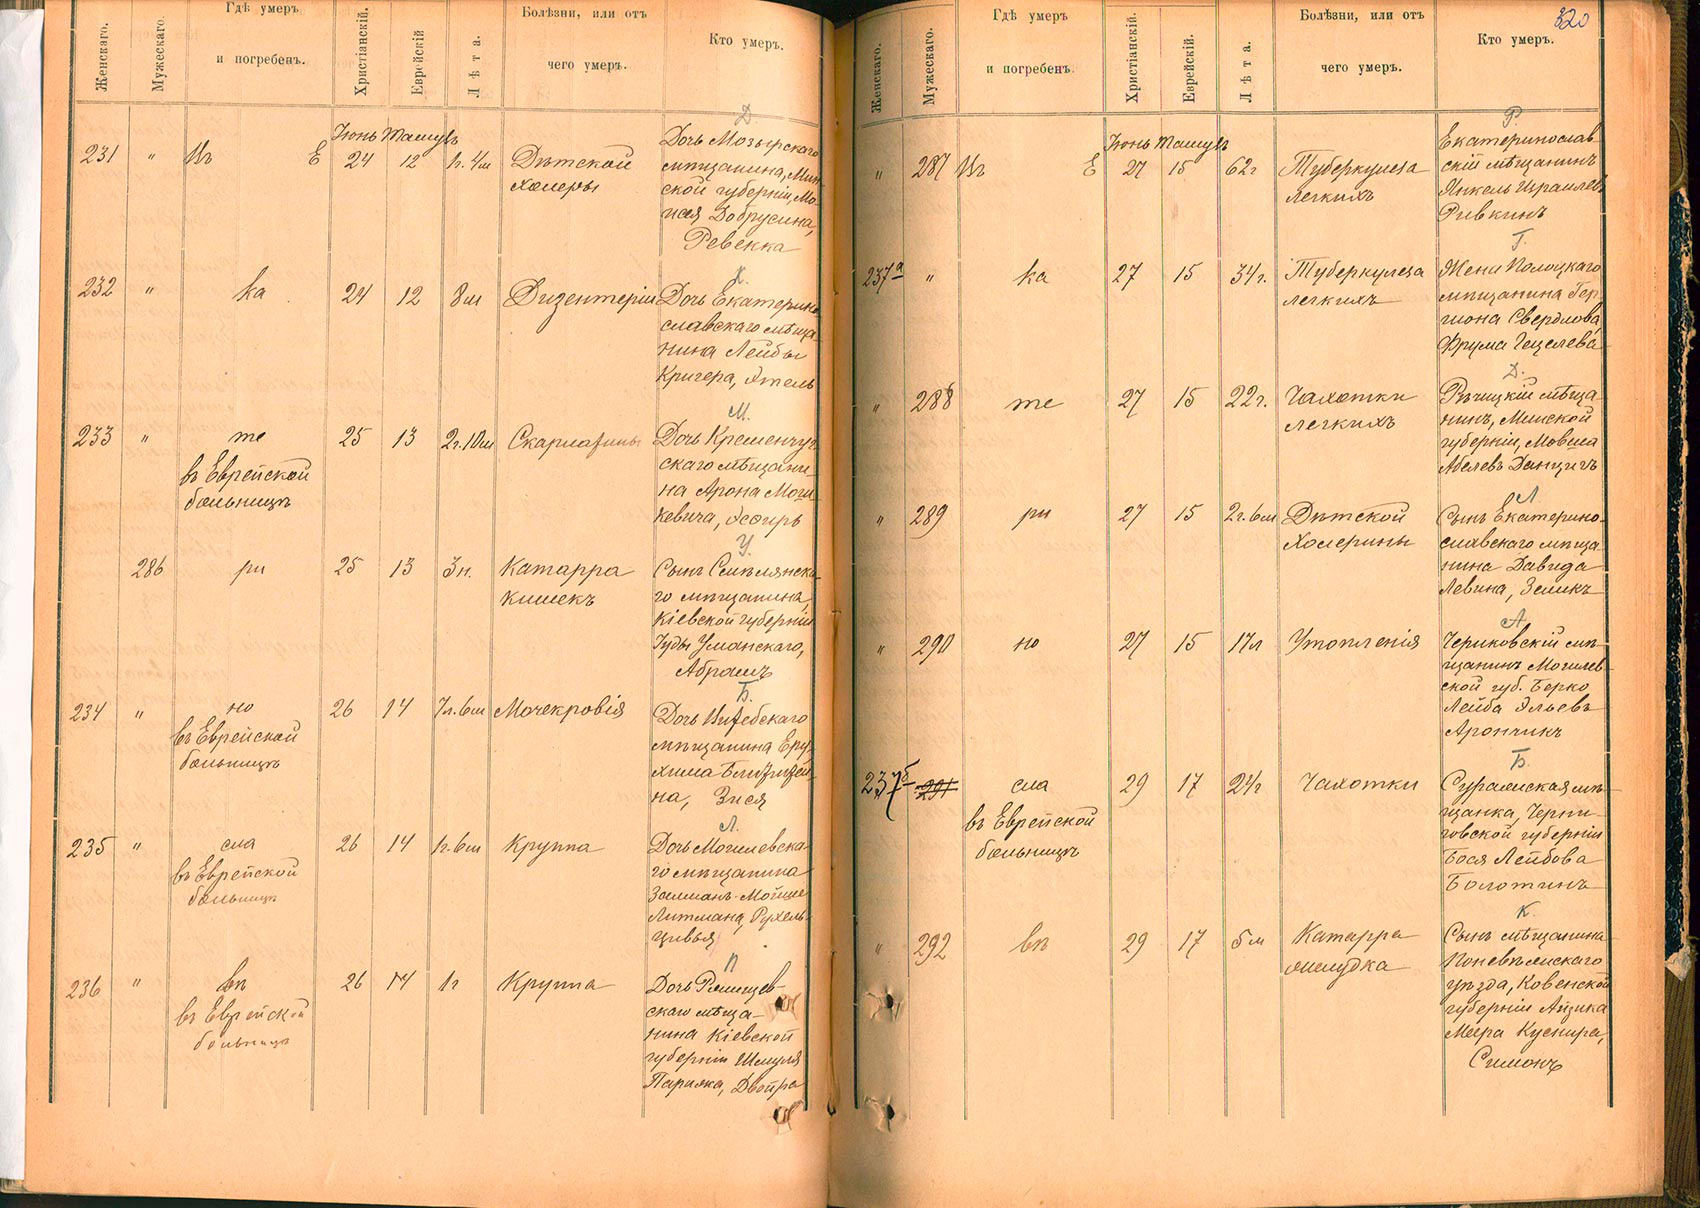 Женскаго.
Мужескаго.
Гдѣ умеръ
и погребенъ.
Христіанскій.
Еврейскій
Лѣта.
Болѣзни, или отъ
чего умеръ.
Кто умеръ.
Д.
Іюнь Тамузъ
231 " Въ Е 24 12 1г.4м Дѣтской
холеры
Дочь Мозырскаго
мѣщанина, Мин-
ской губерніи, Мо-
Добрусина,
Ревекка
232 " ка 24 12 8м Дизентеріи
Дочь Екатерино-
славскаго мѣща-
нина Лейбы
Кригера, Этель
М.
233 " те 25 13 2г.10м Скарлатины
въ Еврейской
больницѣ
Дочь Кременчуг-
скаго мѣщани-
на Арона Моги-
кевича, Эсфирь
У.
286 ри 25 13 3н. Катарра
кишекъ
Сынъ Смѣлянска-
го мѣщанина,
Кіевской губерніи
Іуды Уманскаго,
Абрамъ
Б.
234 " но 26 14 7л.6м Мочекровія
въ Еврейской
больницѣ
Дочь Витебскаго
мѣщанина Еру-
хима
на, Зися
Л.
235 " сла 26 14 1г.6м Круппа
въ Еврейской
больницѣ
Дочь Могилевска-
го мѣщанина
Залмана-Мовше
Литмана, Рухель-
Цивья
П
236 " вѣ 26 14 1г Круппа
въ Еврейской
больницѣ
Дочь
скаго мѣща-
нина Кіевской
губерніи Шмуля
Двойра
320
Женскаго.
Мужескаго.
Гдѣ умеръ
и погребенъ.
Христіанскій.
Еврейскій.
Лѣта.
Болѣзни, или отъ
чего умеръ.
Кто умеръ.
Р.
Іюнь Тамузъ
" 287 Въ Е 27 15 62г Туберкулеза
легкихъ
Екатеринослав-
скій мѣщанинъ
Янкель Израилевъ
Ривкинъ
Г.
237а " ка 27 15 34г. Туберкулеза
легкихъ
Жена Полоцкаго
мѣщанина Гер-
шона Свердлова,
Фрума Гецелева
Д.
" 288 те 27 15 22г. Чахотки
легкихъ
Рѣчицкій мѣща-
нинъ, Минской
губерніи, Мовша
Абелевъ Данцигъ
Л.
" 289 ри 27 15 2г.6м Дѣтской
Холерины
Сынъ Екатерино-
славскаго мѣща-
нина Давида
Левина, Зеликъ
А.
" 290 но 27 15 17л Утопленія
Чериковскій мѣ-
щанинъ Могилев-
ской губ. Берко
Лейба Эльевъ
Арончикъ
Б.
237б 291 сла 29 17 24г Чахотки
въ Еврейской
больницѣ
Суражская мѣ-
щанка, Черни-
говской губерніи
Бася Лейбова
Болотинъ
К.
" 292 вѣ 29 17 5м Катарра
желудка
Сынъ мѣщанина
Поневѣжскаго
уѣзда, Ковенской
губерніи Айзика
Меера Куснира,
Симонъ